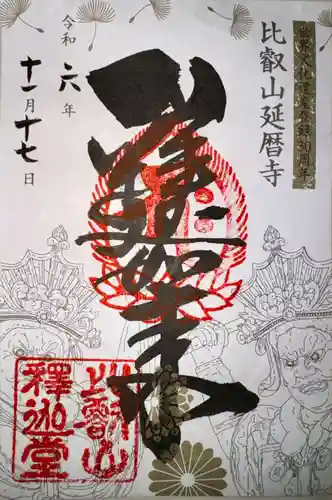 世界文化遺産登録30周年
比叡山延暦寺
釋迦如来
令和六年
十一月十七日
比叡山
釋迦堂